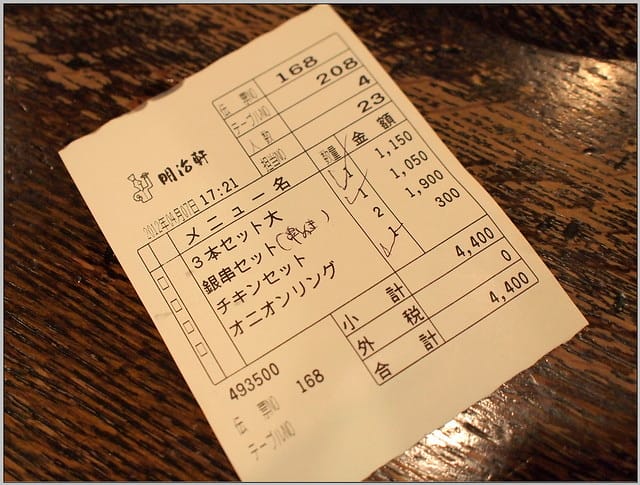 伝票NO 168
テーブルNO 208
人数 4
担当NO 23
明治軒
2012年04月07日 17:21
メニュー名 数量 金額
3本セット大 1 1,150
銀串セット( ) 1 1,050
チキンセット 2 1,900
オニオンリング 1 300
小計 4,400
外税 0
合計 4,400
493500
伝票NO 168
テーブルNO